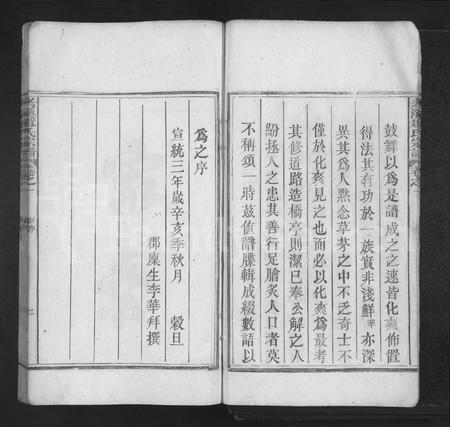 鼓舞以為是譜成之之速皆化爽佈置
得法其有功於一族實非淺鮮華亦深
異其為人黙念草茅之中不乏奇士不
僅於化爽見之也而必以化爽為最考
其修道路造橋亭則潔已奉公解之人
紛拯人之患其善行足膾炙人口者莫
不稱頌一時茲值譜牒輯成綴數語以
為之序
宣統三年歲辛亥季秋月 穀旦
郡廩生李華拜撰